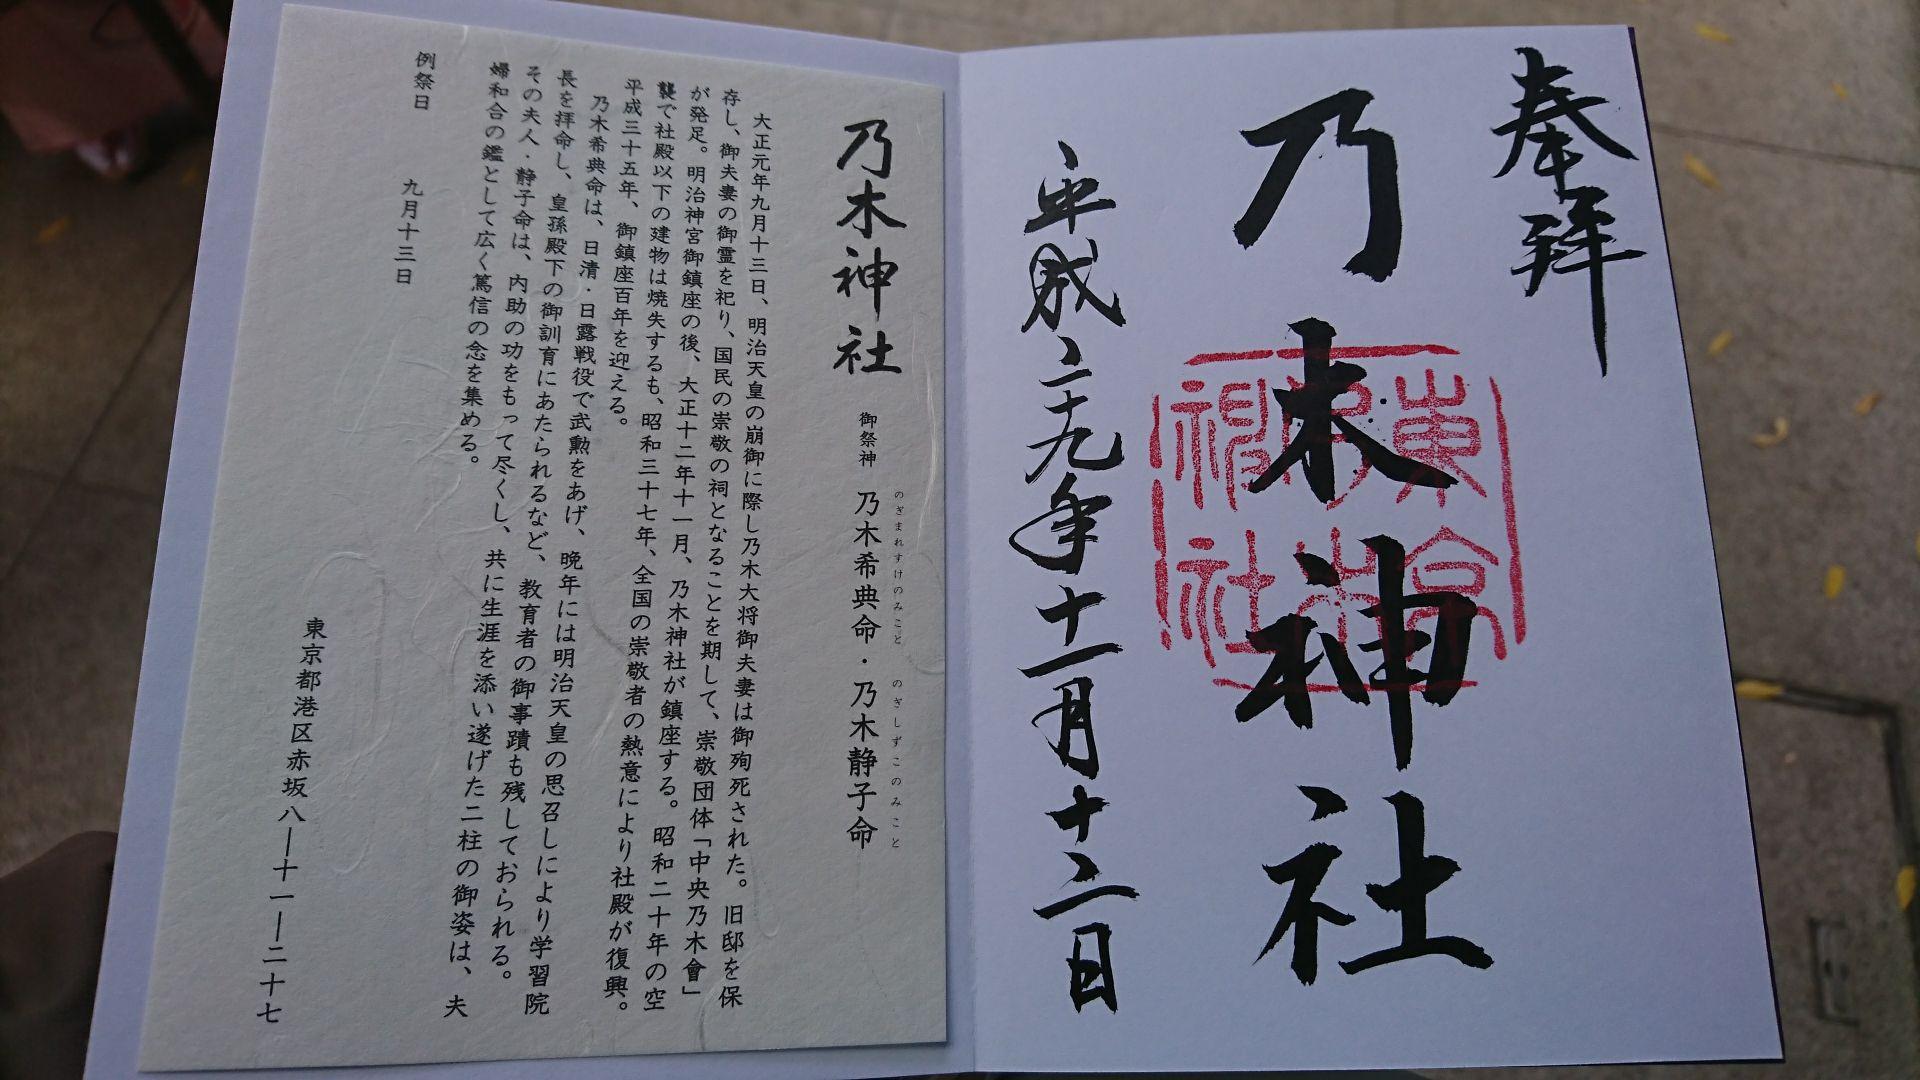 奉拝
乃木神社
東京乃木神社
平成二十九年十一月十二日
乃木神社
御祭神 乃木希典命・乃木静子命
のぎまれすけのみこと のぎしずこのみこと
大正元年九月十三日、明治天皇の崩御に際し乃木大将御夫妻は御殉死された。旧邸を保
存し、御夫妻の御霊を祀り、国民の崇敬の祠となることを期して、崇敬団体「中央乃木會」
が発足。明治神宮御鎮座の後、大正十二年十一月、乃木神社が鎮座する。昭和二十年の空
襲で社殿以下の建物は焼失するも、昭和三十七年、全国の崇敬者の熱意により社殿が復興。
平成三十五年、御鎮座百年を迎える。
乃木希典命は、日清・日露戦役で武勲をあげ、晩年には明治天皇の思召しにより学習院
長を拝命し、皇孫殿下の御訓育にあたられるなど、教育者の御事蹟も残しておられる。
その夫人・静子命は、内助の功をもって尽くし、共に生涯を添い遂げた二柱の御姿は、夫
婦和合の鑑として広く篤信の念を集める。
例祭日 九月十三日
東京都港区赤坂八―十一―二十七